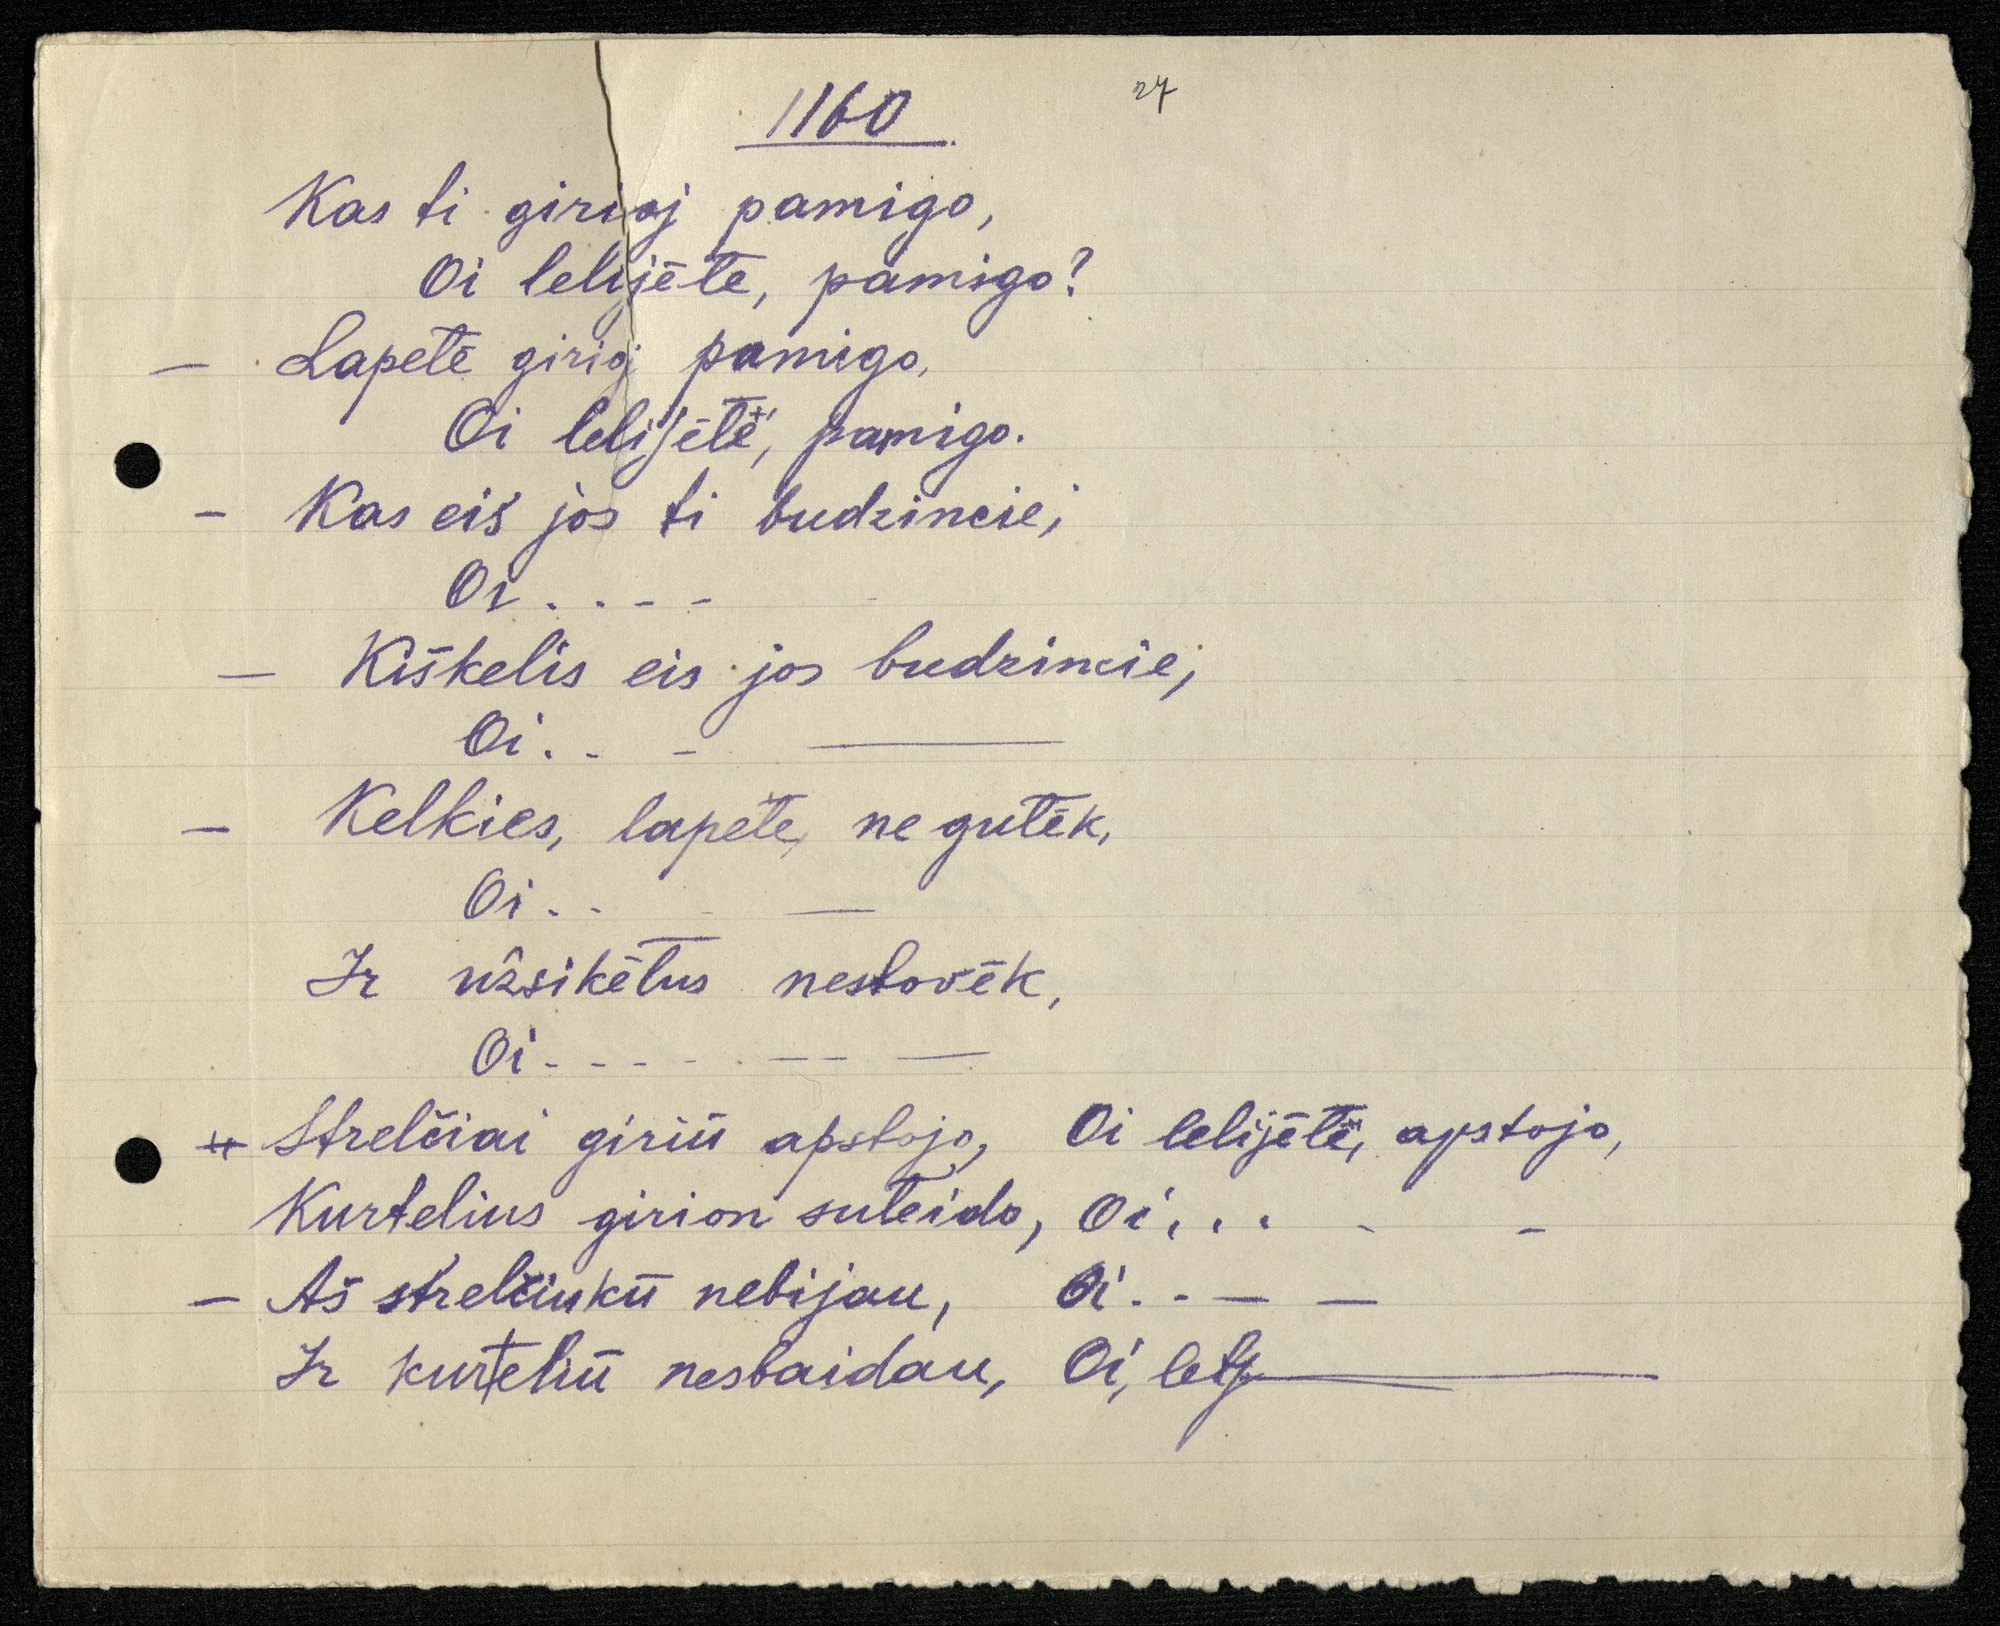 1160
27
Kas ti girioj pamigo,
Oi lelijėtė, pamigo?
– Lapetė girioj pamigo,
Oi lelijėtė, pamigo.
– Kas eis jos ti budzincie,
Oi . . – –
– Kiškelis eis jos budzincie,
Oi . . – —
– Kelkies, lapėte, ne gulėk,
Oi . . – —
Ir užsikėlus nestovėk,
Oi - - - - - — —
– Strelčiai girių apstojo, Oi lelijėtė, apstojo,
Kurtelius girion suleido, Oi . . . - –
– Aš strelčiukų nebijau, Oi . . – —
Ir kurtelių nesbaidau, Oi, lelij———